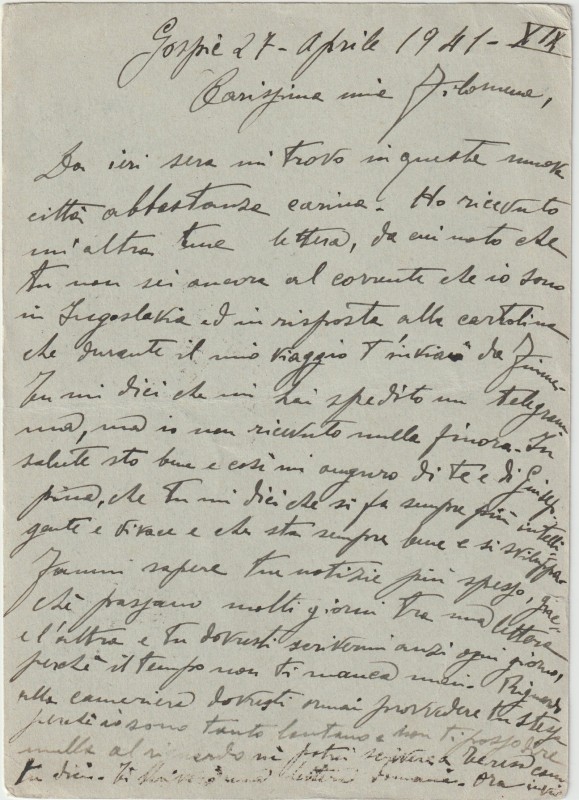 Gospić 27 - Aprile 1941 - XIX
Carissima mia Filomena,
Da ieri sera mi trovo in questa nuova
città abbastanza carina. Ho ricevuto
un'altra tua lettera, da cui noto che
tu non sei ancora al corrente che io sono
in Jugoslavia ed in risposta alla cartolina
che durante il mio viaggio t'inviai da Fiume.
Tu mi dici che mi hai spedito un telegram
ma, ma io non ricevuto nulla finora. In
salute sto bene e così mi auguro di te e di Giusep
pina, che tu mi dici che si fa sempre più intelli
gente e vivace e che sta sempre bene e si sviluppa.
Fammi sapere tue notizie più spesso, giac-
chè passano molti giorni tra una lettera
e l'altra e tu dovresti scrivermi anzi ogni giorno,
perchè il tempo non ti manca mai. Riguardo
alla cameriera dovresti ormai provvedere tu stessa
perchè io sono tanto lontano e non ti posso dire
nulla al riguardo
tu dici. Ti domani. Ora